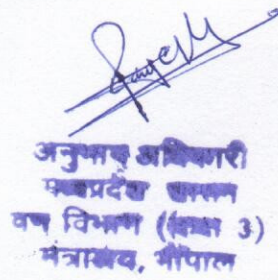 अनुभाग अधिकारी
मध्यप्रदेश शासन
वन विभाग ((कक्ष 3)
मंत्रालय, भोपाल